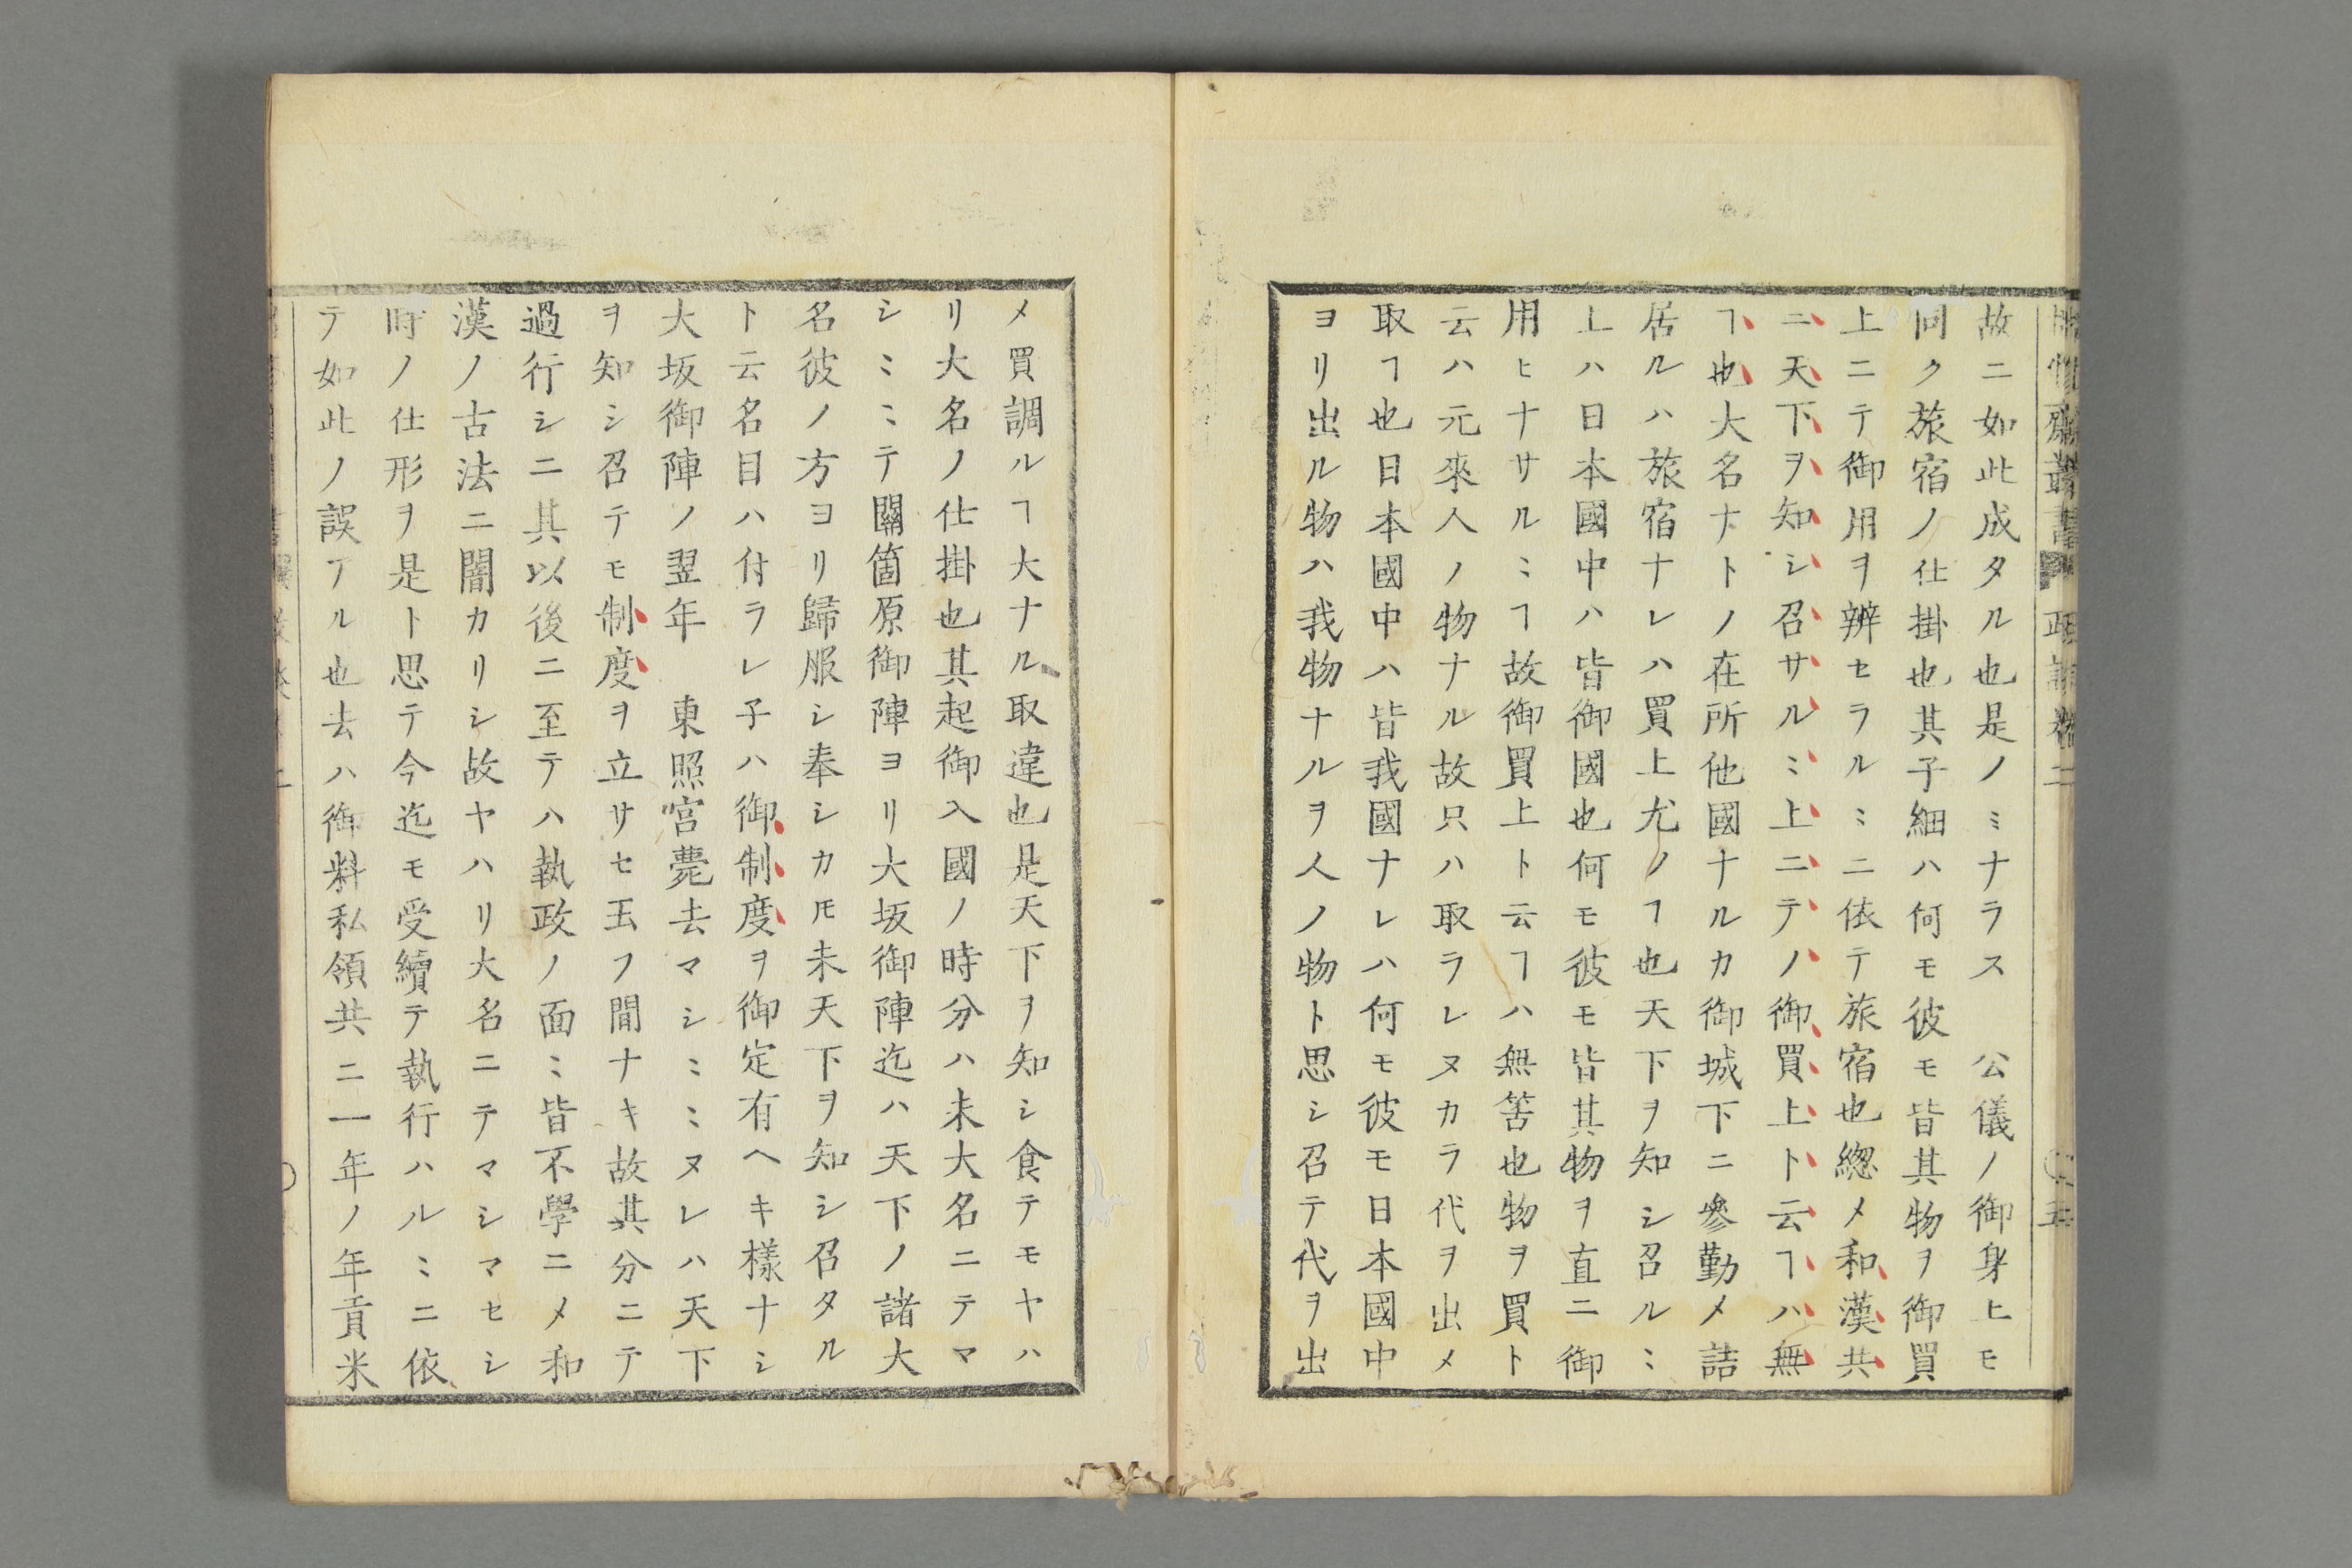 故ニ如此成タル也是ノミナラス　公儀ノ御身ヒモ
同ク旅宿ノ仕掛也其子細ハ何モ彼モ皆其物ヲ御買
上ニテ御用ヲ辨セラルミニ依テ旅宿也緫メ和漢共
ニ天下ヲ知シ召サルミ上ニテノ御買上ト云ヿハ無
ヿ也大名ナトノ在所他國ナルカ御城下ニ參勤メ詰
居ルハ旅宿ナレハ買上尤ノヿ也天下ヲ知シ召ルミ
上ハ日本國中ハ皆御國也何モ彼モ皆其物ヲ直ニ御
用ヒナサルミヿ故御買上ト云ヿハ無筈也物ヲ買ト
云ハ元來人ノ物ナル故只ハ取ラレヌカラ代ヲ出メ
取ヿ也日本國中ハ皆我國ナレハ何モ彼モ日本國中
ヨリ出ル物ハ我物ナルヲ人ノ物ト思シ召テ代ヲ出
メ買調ルヿ大ナル取違也是天下ヲ知シ食テモヤハ
リ大名ノ仕掛也其起御入國ノ時分ハ未大名ニテマ
シミミテ關箇原御陣ヨリ大坂御陣迄ハ天下ノ諸大
名彼ノ方ヨリ歸服シ奉シカ𪜈未天下ヲ知シ召タル
ト云名目ハ付ラレ子ハ御制度ヲ御定有ヘキ樣ナシ
大坂御陣ノ翌年　東照宮薨去マシミミヌレハ天下
ヲ知シ召テモ制度ヲ立サセ玉フ間ナキ故其分ニテ
過行シニ其以後ニ至テハ執政ノ面ミ皆不學ニメ和
漢ノ古法ニ闇カリシ故ヤハリ大名ニテマシマセシ
時ノ仕形ヲ是ト思テ今迄モ受續テ執行ハルミニ依
テ如此ノ誤アル也去ハ御料私領共ニ一年ノ年貢米